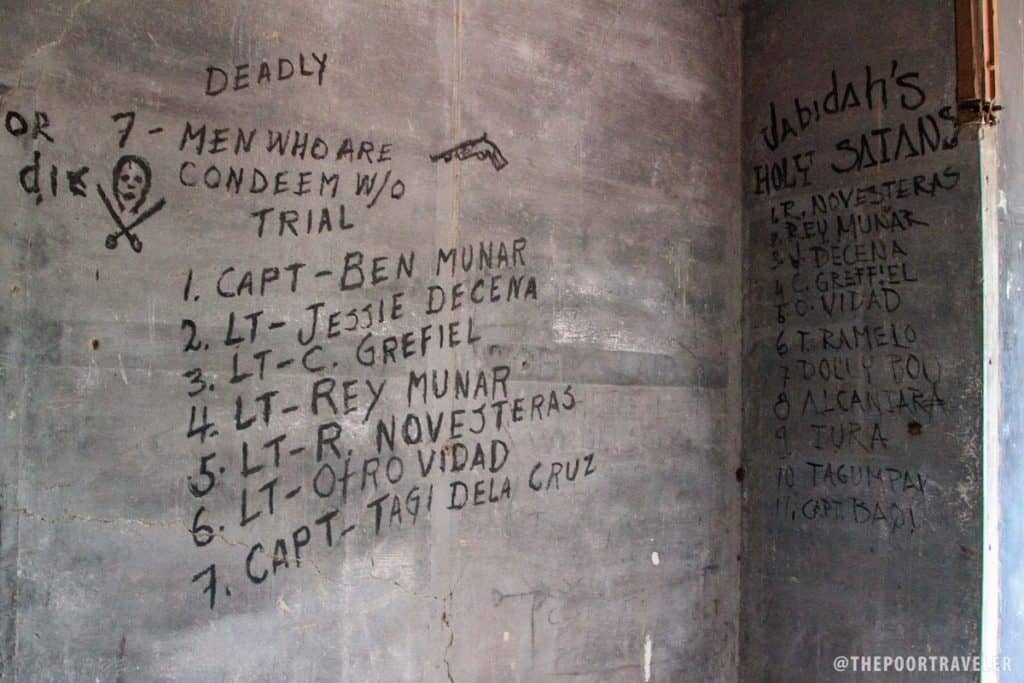 DEADLY
OR 7- MEN WHO ARE
die CONDEEM W/O
TRIAL
1. CAPT-BEN MUNAR
2. LT-JESSIE DECENA
3. LT-C. GREFIEL
4. LT-REY MUNAR
5. LT-R. NOVESTERAS
6. LT-OTRO VIDAD
7. CAPT-TAGI DELA CRUZ
Jabidah's
HOLY SATANS
1. R. NOVESTERAS
2. REY MUNAR
3. J. DECENA
4 C. GREFFIEL
5 O. VIDAD
6 T. RAMELO
7 DOLLY
8 ALCANTARA
9 IURA
10 TAGUMPAY
11. CAPT.
@THEPOORTRAVELER